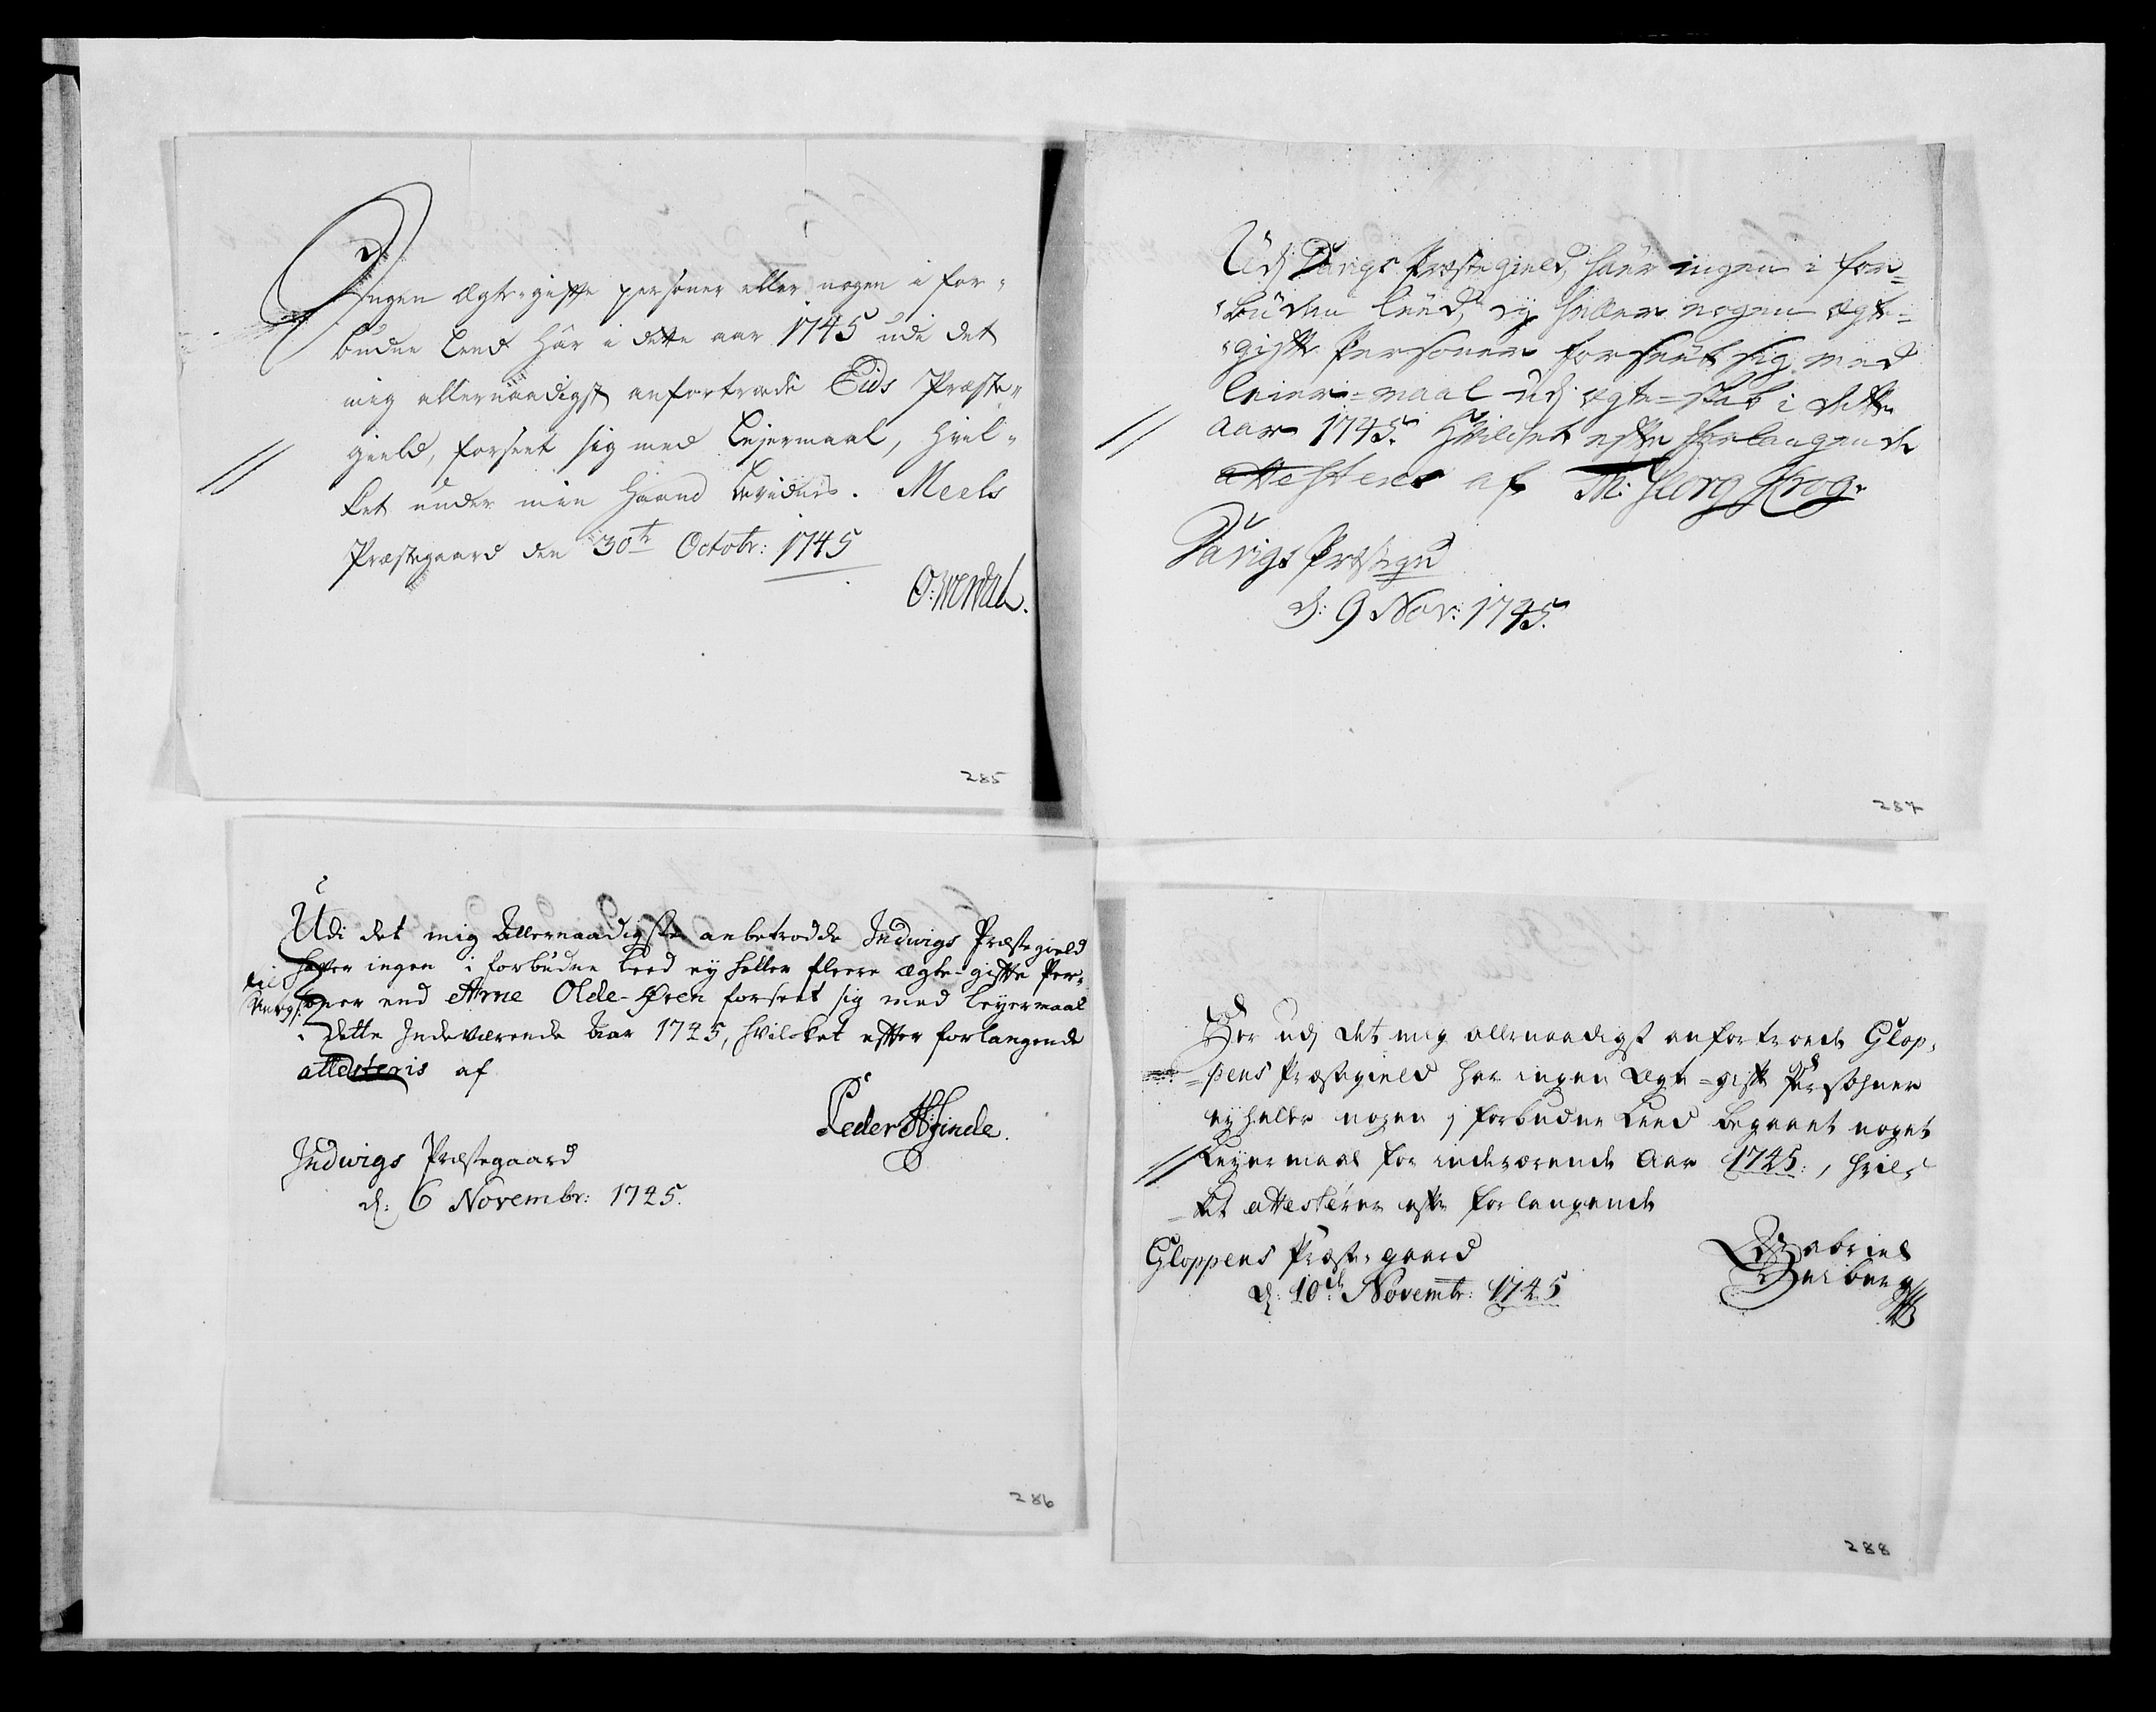 Ingen Ægte-gifte personer eller nogen i for-
budne Leed har i dette aar 1745 udi det
mig allernaadigst anfortroede Eids Præste-
gield, forseet sig med Lejermaal, hvil-
ket under min Haand bevidnes. Meels
Præstegaard den 30te Octobr: 1745
285
Udj Davigs Præstegield, haver ingen i for-
budne leed, ey heller nogen ægte-
gifte Personer forseet sig med
leiermaal udj ægte-skab i dette
aar 1745. Hvilchet efter forlangende
attesteres af M: Georg Krog.
Davigs Præstegrd
d: 9 Nov: 1745.
287
Udi det mig Allernaadigste anbetrodde Indwigs Præstegield
hafver ingen i forbudne Leed ey heller fleere ægte-gifte Per-
soner end Arne Olde-Øren forseet sig med Leyermaal
i dette Indeværende Aar 1745, hvilcket efter forlangende
attesteris af
Peder Hjinde.
Indwigs Præstegaard
d: 6 Novembr: 1745.
286
Her udj det mig allernaadigst anfortroede Glop-
pens Præstegield har ingen Ægte-gifte Persohner
ey heller nogen j forbudne Leed begaaet noget
Leyermaal for indeværende Aar 1745:, hvil-
ket attesterer efter forlangende
Gloppens Præste-gaard
d: 10de Novembr: 1745
Gabriel
Heiberg
288